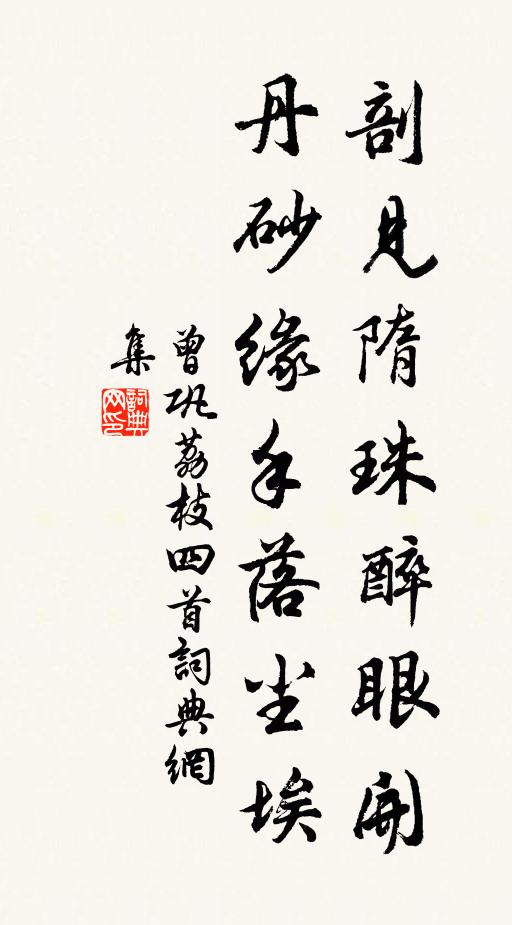 剖見隋珠醉眼開
丹砂緣手落尘埃
曾巩荔枝四首詞典網
集
詞典
网印